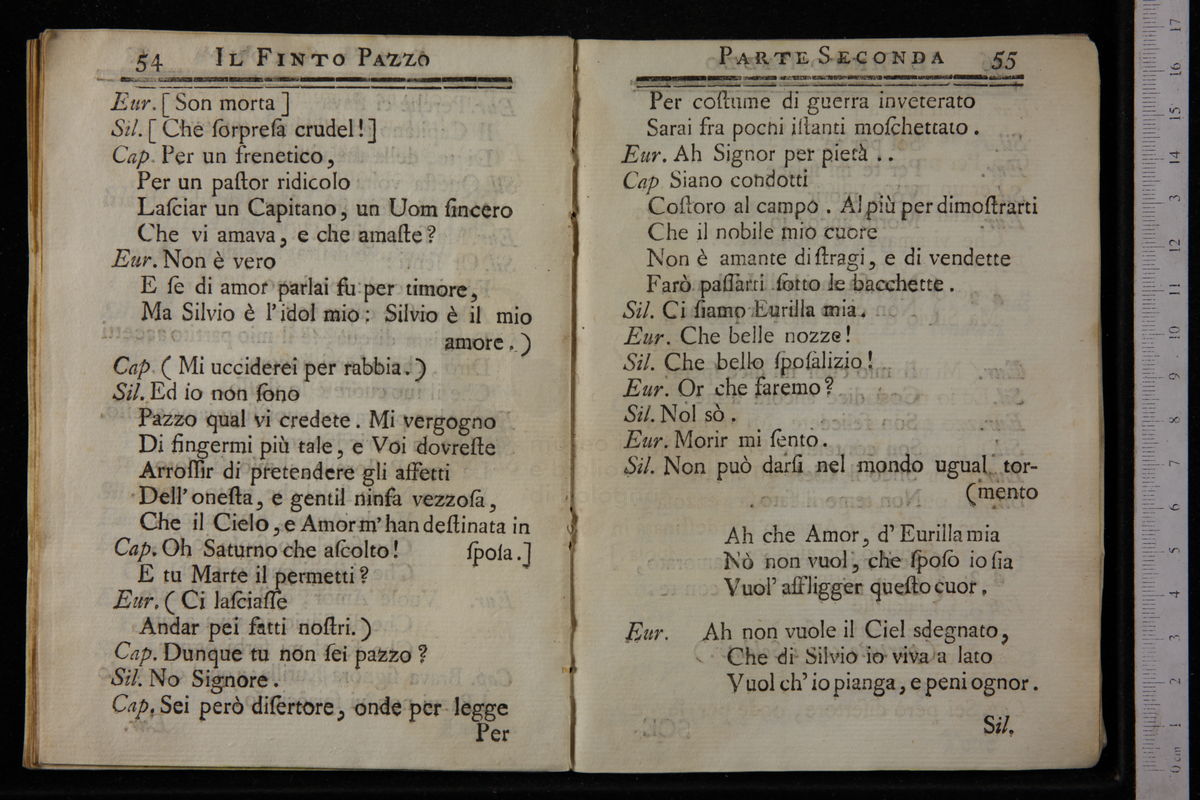 54 IL FINTO PAZZO
Eur. [ Son morta ]
Sil. [ Che ſorpreſa crudel! ]
Cap. Per un frenetico,
Per un paſtor ridicolo
Laſciar un Capitano, un Uom ſincero
Che vi amava, e che amaſte?
Eur. Non è vero
E ſe di amor parlai fu per timore,
Ma Silvio è l'idol mio: Silvio è il mio
amore. )
Cap. ( Mi ucciderei per rabbia. )
Sil. Ed io non ſono
Pazzo qual vi credete. Mi vergogno
Di fingermi più tale, e Voi dovreſte
Arroſſir di pretendere gli affetti
Dell' oneſta, e gentil ninfa vezzoſa,
Che il Cielo, e Amor m' han deſtinata in
Cap. Oh Saturno che aſcolto! ſpoſa. ]
E tu Marte il permetti?
Eur. ( Ci laſciaſſe
Andar pei fatti noſtri. )
Cap. Dunque tu non ſei pazzo?
Sil. No Signore.
Cap. Sei però diſertore, onde per legge
Per
PARTE SECONDA 55
Per coſtume di guerra inveterato
Sarai fra pochi iſtanti moſchettato.
Eur. Ah Signor per pietà ..
Cap Siano condotti
Coſtoro al campo. Al più per dimoſtrarti
Che il nobile mio cuore
Non è amante di ſtragi, e di vendette
Farò paſſarti ſotto le bacchette.
Sil. Ci ſiamo Eurilla mia.
Eur. Che belle nozze!
Sil. Che bello ſpoſalizio!
Eur. Or che faremo?
Sil. Nol sò.
Eur. Morir mi ſento.
Sil. Non può darſi nel mondo ugual tor-
(mento
Ah che Amor, d' Eurilla mia
Nò non vuol, che ſpoſo io ſia
Vuol' affligger queſto cuor.
Eur. Ah non vuole il Ciel sdegnato,
Che di Silvio io viva a lato
Vuol ch' io pianga, e peni ognor.
Sil.